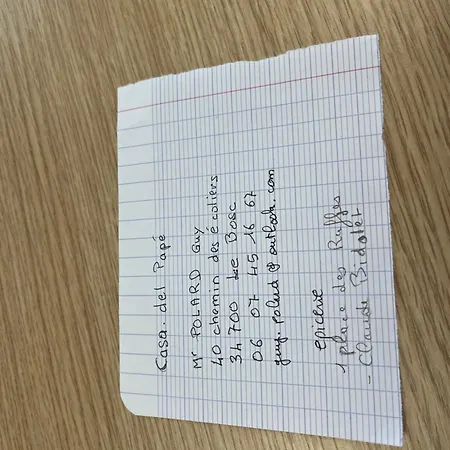 Casa. del Papé
Mr POLARD Guy
40 chemin des écoliers
34700 Le Bosc
06 07 45 16 67
guy.polard@outlook.com
epicerie
1 place des Ruffes
- Claude Bidolet